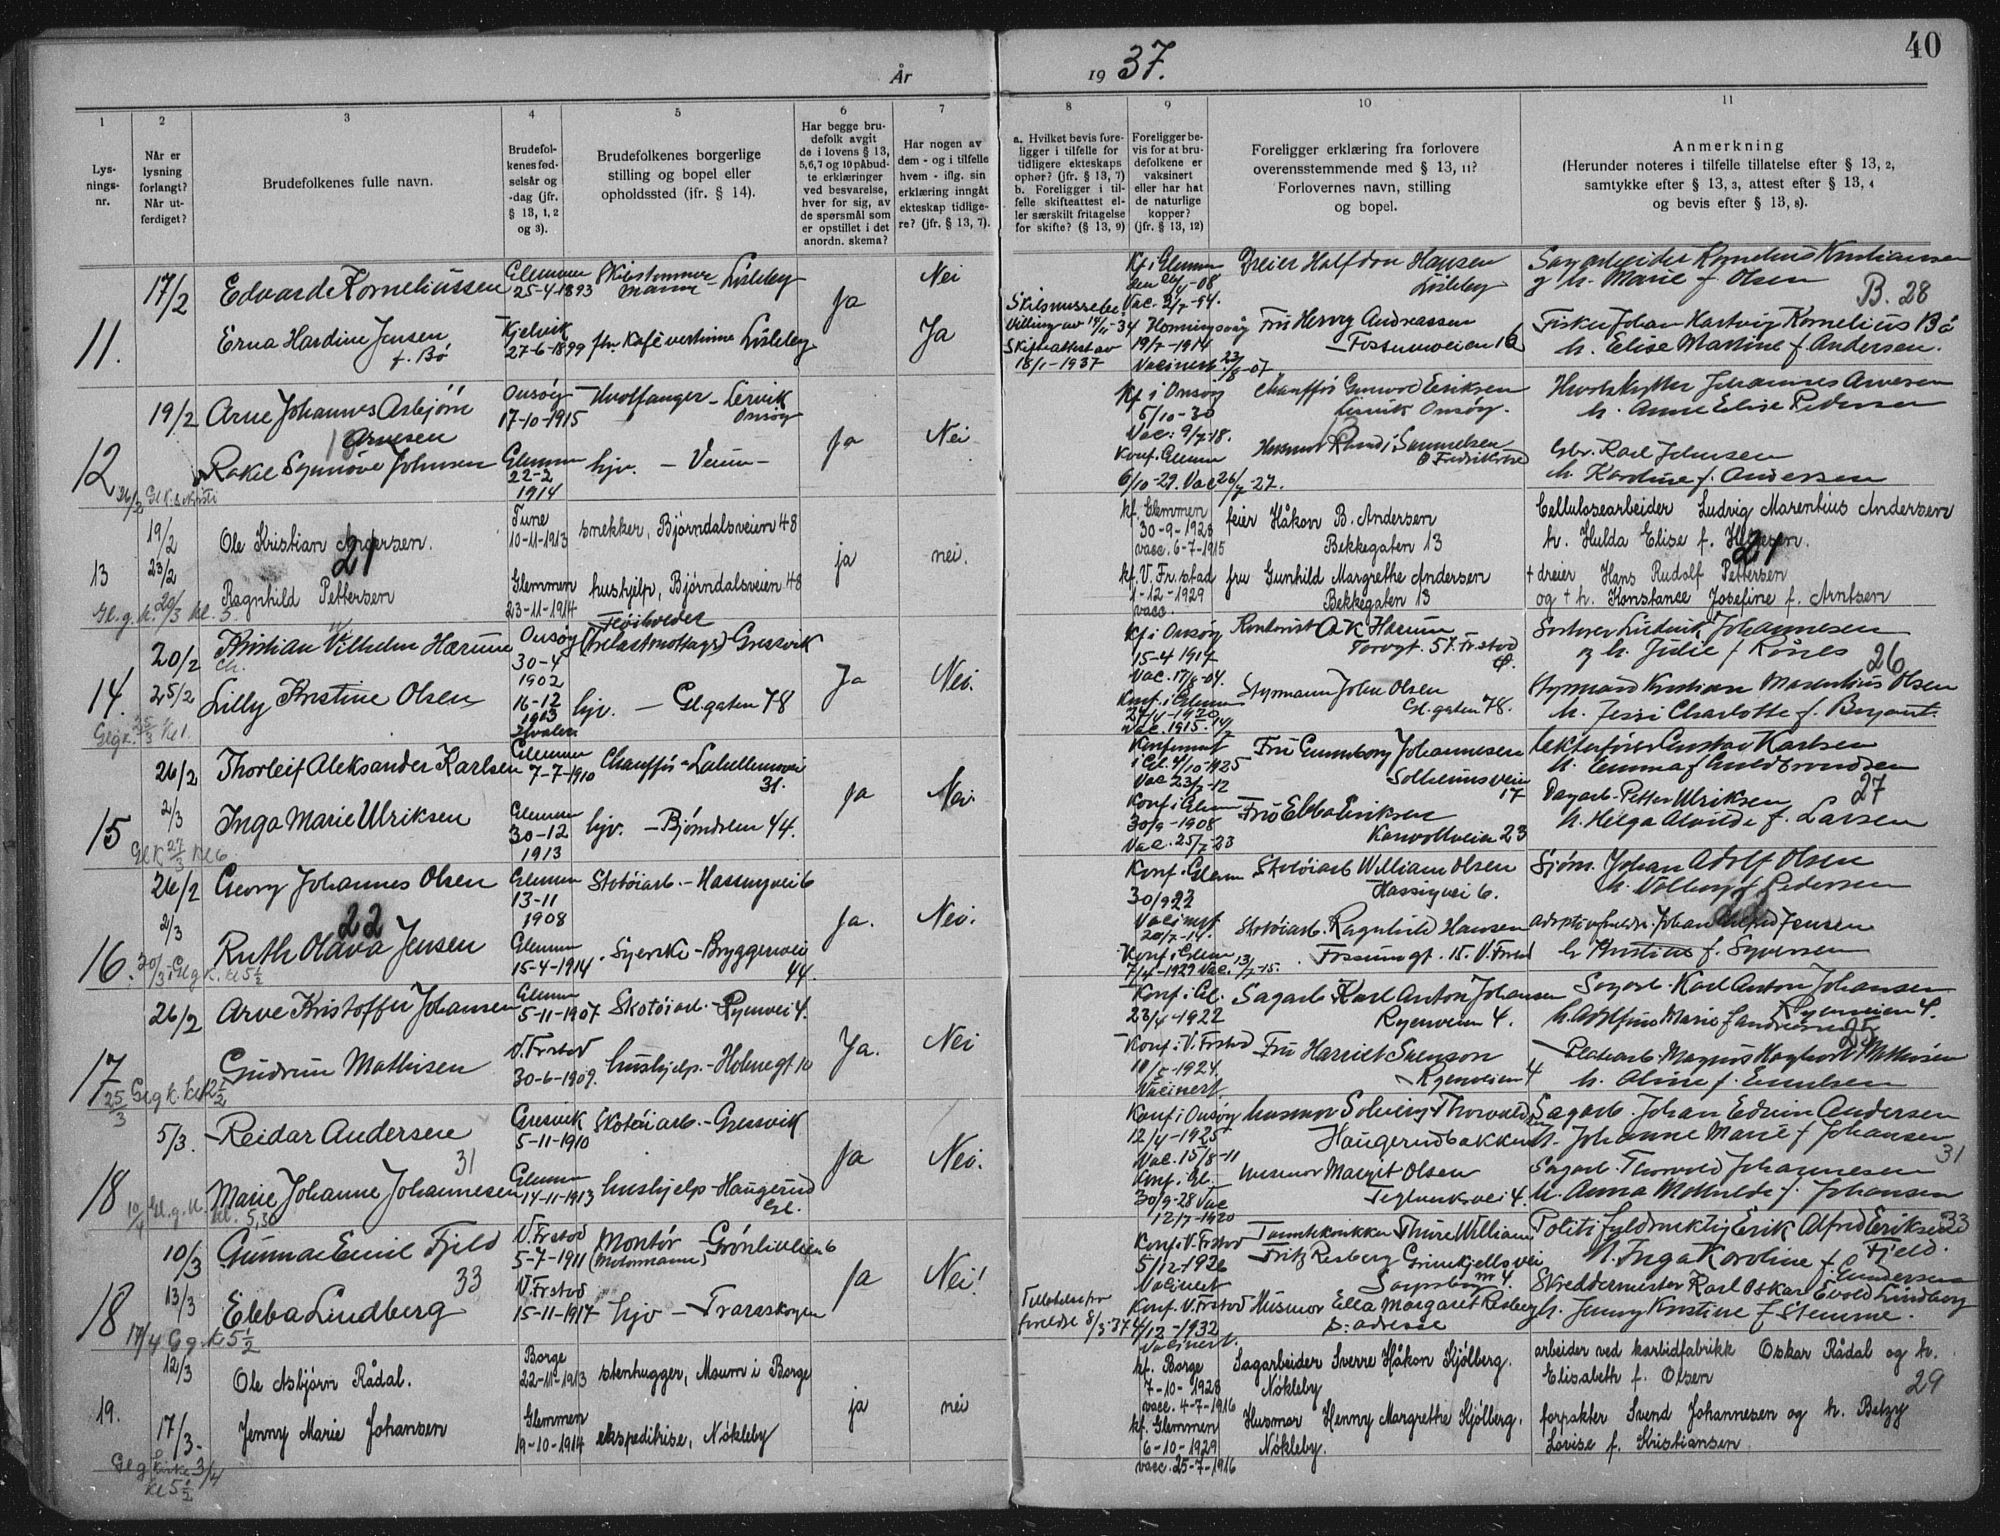 År 1937.
40
1 2 3 4 5 6 7 8 9 10 11
Lys-
nings-
nr.
Når er
lysning
forlangt?
Når ut-
ferdiget?
Brudefolkenes fulle navn.
Brudefol-
kenes fød-
selsår og
-dag (jfr.
§ 13, 1, 2
og 3).
Brudefolkenes borgerlige
stilling og bopel eller
opholdssted (ifr. § 14).
Har begge bru-
defolk avgit
de i lovens § 13,
5,6,7 og 10 påbud-
te erklæringer
ved besvarelse,
hver for sig, av
de spørsmål som
er opstillet i det
anordn. skema?
Har nogen av
dem - og i tilfelle
hvem - iflg. sin
erklæring inngått
ekteskap tidlige-
re? (jfr. § 13, 7).
a. Hvilket bevis fore-
ligger i tilfelle for
tidligere ekteskaps
ophør? (jfr. § 13, 7)
b. Foreligger i til-
felle skifteattest el-
ler særskilt fritagelse
for skifte? (§ 13, 9)
Foreligger be-
vis for at bru-
defolkene er
vaksinert
eller har hat
de naturlige
kopper?
(jfr. § 13, 12)
Foreligger erklæring fra forlovere
overensstemmende med § 13, 11?
Forlovernes navn, stilling
og bopel.
Anmerkning
(Herunder noteres i tilfelle tillatelse efter § 13, 2,
samtykke efter § 13, 3, attest efter § 13, 4
og bevis efter § 13, 8).
11.
17/2 Edvard Korneliussen
Glemmen
25-4-1893
Lisleby
Ja
Nei
Kf i Glemmen
Halfdan Hansen
Lisleby
Sagarbeider Kornelius Kristiansen
og h. Marie f. Olsen
B. 28
Erna Hardine Jensen
f. Bø
Kjelvik
27-6-1899
Kafévertinne Lisleby
Ja
Skifteattest av
18/1-1937
Honningsvåg
19/7-1914
Fru Henry Andreassen
Fossumveien 16
Fisker Johan Hartvig Kornelius Bø
h. Elise Martine f. Andersen.
12
19/2 Arne Johannes Asbjørn
Arnesen
Onsøy
17-10-1915
Hvalfanger - Lervik
Onsøy
Ja
Nei
Kf i Onsøy
5/10-30
Vac: 9/7-18.
Chauffør Gunvald Eriksen
Lervik Onsøy.
Hvalskytter Johannes Arnesen
h. Anne Elise Pedersen
18
Rakel Synnøve Johnsen
Glemmen
22-2
1914
hjv. - Veum -
Konf. Glemm
6/10-29. Vac 26/7-27.
Randi Samuelsen
Fredrikstad
Gbr. Karl Johnsen
h. Karoline f. Andersen
13
19/2
23/2
Ole Kristian Andersen.
21
Tune
10-11-1913
snekker, Bjørndalsveien 48
ja
nei.
kf. Glemmen
30-9-1928
vacc. 6-7-1915
feier Håkon B. Andersen
Bekkegaten 13
Cellulosearbeider Ludvig Marentius Andersen
h. Hulda Elise f.
21
Ragnhild Pettersen
Gl. g. k. 20/3 kl. 3
Glemmen
23-11-1914
hushjelp, Bjørndalsveien 48
kf. V. Fr.stad
1-12-1929
vacc.
fru Gunhild Margrethe Andersen
Bekkegaten 13
+ dreier Hans Rudolf Pettersen
og + h. Konstance Josefine f. Arntsen
14.
20/2
25/2
Kristian Vilhelm Hærum
Ch.
Onsøy
30-4
1902
Fløitholder
(Trelastmottager) Gressvik
Ja
Nei.
Kf i Onsøy
15-4 1917
Vac. 17/8-04.
Kontorist O K Hærum
Torvgt. 57. Fr.stad
Ø.
Sorterer Fredrik Johannesen
og h. Julie f. Rönes
26
Lilly Kristine Olsen
16-12
1903
Hvaler
hjv. - Gl.gaten 78
Konf. i Glemm
Styrmann John Olsen
Gl. gaten 78.
Styrmann Kristian Marentius Olsen
h. Jessi Charlotte f. Bryant.
15
26/2
2/3
Thorleif Aleksander Karlsen
Glemmen
7-7-1910
Chauffør - Labellenvei
31.
Ja
Nei.
Konfirmert
i Gl. 4/10-1925
Vac 23/7-12
Fru Gunnborg Johannesen
Solheimsveien
17
Gustav Karlsen
h. Emma f. Guldbrandsen
27
Inga Marie Ulriksen
Gl K 27/3 kl 6
Glemmen
30-12
1913
hjv. - Bjørndalen 44.
Konf i Glem
30/9-1908
Vac. 25/7-23
Fru Ebba Eriksen
23
Dagarb. Petter Ulriksen
h. Helga Alvilde f. Larsen
16.
26/2
2/3
Georg Johannes Olsen
22
Glemmen
13-11
1908
Skotøiarb. - Hassingvei 6
Ja.
Nei.
Konf. i Glem
30/9 22
20/7-14.
Skotøiarb William Olsen
Hassingvei 6.
Sjøm. Johan Adolf Olsen
h. Valborg f. Pedersen
Ruth Olava Jensen
20/3 Gl g k. kl 5½
Glemmen
15-4-1914
Syerske - Bryggerivei
44.
Konf i Glem
7/4-1929 Vac. 13/7-15.
Skotøiarb. Ragnhild Hansen
Fossumgt. 15. V. Frstad
Adoptivforeldre Johan Alfred Jensen
h Kristine f. Syversen
17
26/2
Arve Kristoffer Johansen
Glemmen
5-11-1907
Skotøiarb. - Ryenvei 4.
Ja.
Nei
Konf. i Gl.
23/4-1922
Sagarb. Karl Anton Johansen
Ryenveien 4.
Sagarb. Karl Anton Johansen
Ryenveien 4.
25
Gudrun Mathisen
25/3 Gl g k. kl 2½
V. Frstad
30-6-1909.
hushjelp. - Holmegt 10
Konf i V. Frstad
11/5-1924.
Vacinert
Fru Harriet Svenson
Ryenveien 4
Magnus Hagbart Mathisen
h. Oline f. Emilsen
18
5/3.
Reidar Andersen
31
Gressvik
5-11-1910
Skotøiarb. - Gressvik
Ja
Nei.
Konf i Onsøy
12/4-1925
Vac. 15/8-11
Husmor Solveig Thorvaldsen
Haugerudbakken
Sagarb. Johan Edvin Andersen
h. Johanne Marie f. Johansen
31
Marie Johanne Johannesen
10/4 Gl. g. K.
kl. 5,30
Glemmen
14-11-1913
hushjelp - Haugerud
Gl.
Konf. Gl.
30/9-28 Vac
12/7-1920
Husmor Margit Olsen
Teglverksvei 4.
Sagarb. Thorvald Johannesen
h. Anna Mathilde f. Johansen
18
10/3
13/3
Gunnar Emil Fjeld
33
V. Frstad
5-7-1911
Montør - Grønlileien 6
(Motormann)
Ja
Nei!
Konf. V. Frstad
5/12-1926
Vacinert
Tanntekniker Thure William
Fritz Resberg Grimkjellsvei
Sarpsborg
Politifuldmektig Erik Alfred Eriksen
Fjeld.
h. Inga Karoline f. Gundersen
33
Ebba Lindberg
17/4 Gl g. kl 5½
V. Frstad
15-11-1917
hjv - Traraskogen
Tillatelse fra
foreldre 8/3-37
Konf. V. Frstad
4/12-1932
Vacinert.
Husmor Ella Margaret Resberg
s. adresse
Skreddermester Karl Oskar Evald Lindberg
h. Jenny Kristine f Stemme.
19.
12/3
17/3-
Ole Asbjørn Rådal.
Borge
22-11-1913
stenhugger, Moum i Borge
ja
nei
kf. Borge
7-10-1928
vacc. 4-7-1916
Sagarbeider Sverre Håkon Kjølberg.
Nøkleby
arbeider ved karbidfabrikk Oskar Rådal og h.
Elisabeth f. Olsen
29
Jenny Marie Johansen
Gl g kirke 3/4
kl 5½
Glemmen
19-10-1914
ekspeditrise, Nøkleby
kf. Glemmen
6-10-1929
vacc. 25-7-1916
Husmor Henny Margrethe Kjølberg.
Nøkleby.
forpakter Svend Johannesen og h. Betzy
Lovise f. Kristiansen